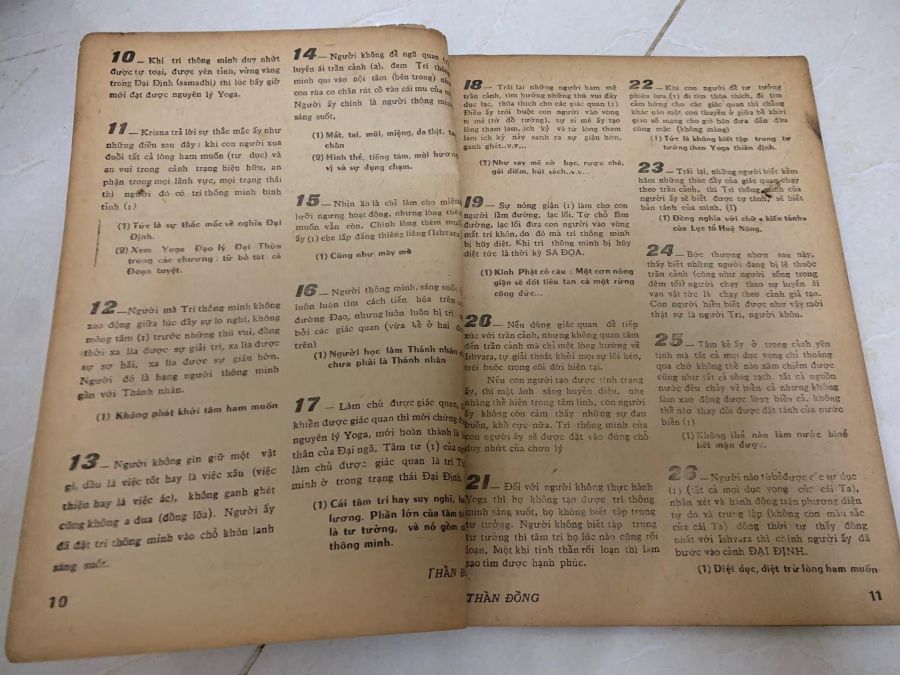 10 — Khi trí thông minh duy nhứt
được tự toại, được yên tỉnh, vững vàng
trong Đại Định (samadhi) thì lúc bấy giờ
mới đạt được nguyên lý Yoga.
11 — Krisna trả lời sự thắc mắc ấy như
những điều sau đây : khi con người xua
đuổi tất cả lòng ham muốn (tư dục) và
an vui trong cảnh trạng hiện hữu, an
phận trong mọi lãnh vực, mọi trạng thái
thì người đó có trí thông minh bình
tỉnh (1)
(1) Tức là sự thắc mắc về nghĩa Đại
Định.
(2) Xem Yoga Đạo lý Đại Thừa
trong các chương : từ bỏ tất cả
Đoạn tuyệt.
12 — Người mà Trí thông minh không
xao động giữa lúc đầy sự lo nghĩ, không
móng tâm (1) trước những thú vui, đồng
thời xa lìa được sự giải trí, xa lìa được
sự sợ hãi, xa lìa được sự giận hờn.
Người đó là hạng người thông minh
gần với Thánh nhân.
(1) Không phát khởi tâm ham muốn
13 — Người không gìn giữ một vật
gì, dầu là việc tốt hay là việc xấu (việc
thiện hay là việc ác), không ganh ghét
cũng không a dua (đồng lõa). Người ấy
đã đặt trí thông minh vào chỗ khôn lanh
sáng suốt.
10
14 — Người không để ngũ quan (1)
luyến ái trần cảnh (2), đem Trí thông
minh qui vào nội tâm (bên trong) như
con rùa co chân rút cổ vào cái mu của
Người ấy chính là người thông minh
sáng suốt,
(1) Mắt, tai, mũi, miệng, da thịt, tay
chân
(2) Hình thể, tiếng tăm, mùi hương
vị và sự dụng chạm.
15 — Nhịn ăn là chỉ làm cho miệng
lưỡi ngưng hoạt động, nhưng lòng thèm
muốn vẫn còn. Chính lòng thèm muốn
ấy (1) che lấp đấng thiêng liêng (Ishvara)
(1) Cũng như mây mờ
16 — Người thông minh, sáng suốt
luôn luôn tìm cách tiến hóa trên
đường Đạo, nhưng luôn luôn bị trì
bởi các giác quan (vừa kể ở hai
trên)
(1) Người học làm Thánh nhân
chưa phải là Thánh nhân
17 — Làm chủ được giác quan,
khiển được giác quan thì mới chứng
nguyên lý Yoga, mới hoàn thành là
thân của Đại ngã. Tâm tư (1) của
làm chủ được giác quan là trí
minh ở trong trạng thái Đại Định.
(1) Cái tâm trí hay suy nghĩ,
lương. Phần lớn của tâm
là tư tưởng, và nó gồm
thông minh.
THẦN ĐỒ
18 — Trái lại những người ham mê
trần cảnh, tìm hưởng những thú vui đầy
dục lạc, thỏa thích cho các giác quan (1)
Điều ấy trói buộc con người vào vòng
si mê (tê đồ tưởng), sự si mê ấy tạo
lòng tham lam, ích kỷ và từ lòng tham
lam ích kỷ nảy sanh ra sự giận hờn,
ganh ghét..v.v...
(1) Như say mê cờ bạc, rượu chè,
gái điếm, hút sách..v.v...
19 — Sự nóng giận (1) làm cho con
người lầm đường, lạc lối. Từ chỗ lầm
đường, lạc lối đưa con người vào vòng
mất trí khôn, do đó mà trí thông minh
bị hủy diệt. Khi trí thông minh bị hủy
diệt tức là thời kỳ SA ĐỌA.
(1) Kinh Phật có câu : Một cơn nóng
giận sẽ đốt tiêu tan cả một rừng
công đức...
20 — Nếu dùng giác quan để tiếp
xúc với trần cảnh, nhưng không quan tâm
đến trần cảnh mà chỉ một lòng hướng về
Ishvara, tự giải thoát khỏi mọi sự lôi kéo,
trói buộc trong cõi đời hiện tại.
Nếu con người tạo được tình trạng
ấy, thì một ánh sáng huyền diệu, nhẹ
nhàng thể hiện trong tâm linh, con người
ấy không còn cảm thấy những sự đau
buồn, khổ cực nữa. Trí thông minh của
con người ấy sẽ được đặt vào đúng chỗ
duy nhứt của chơn lý
21 — Đối với người không thực hành
Yoga thì họ không tạo được trí thông
minh sáng suốt, họ không biết tập trung
tư tưởng. Người không biết tập trung
tư tưởng thì tâm trí họ lúc nào cũng rối
loạn. Một khi tinh thần rối loạn thì làm
sao tìm được hạnh phúc.
THẦN ĐỒNG
22 — Khi con người để tư tưởng
phiêu lưu (1) đi tìm thỏa thích, đi tìm
cảm hứng cho các giác quan thì chẳng
khác nào một con thuyền ở giữa bể khơi
gió sẽ mang cho gió bão đưa đến đâu
cũng mặc (không màng)
(1) Tức là không biết tập trung tư
tưởng theo Yoga thiền định.
23 — Trái lại, những người biết kềm
hãm những thúc đẩy của giác quan chạy
theo trần cảnh, thì Trí thông minh của
người ấy sẽ biết được tự tánh, sẽ biết
bản tánh của mình, (1)
(1) Đồng nghĩa với chữ « kiến tánh»
của Lục tổ Huệ Năng.
24 — Bức thượng nhơn sau này,
thấy biết những người đang bị lệ thuộc
trần cảnh (cũng như người sống trong
đêm tối) người chạy theo sự luyến ái
vạn vật tức là chạy theo cảnh giả tạo.
Con người hiểu biết được như vậy mới
thật sự là người Trí, người khôn.
25 — Tâm kẻ ấy ở trong cảnh yên
tịnh mà tất cả mọi dục vọng chỉ thoáng
qua chớ không thể nào xâm chiếm được
cũng như tất cả sông rạch, tất cả nguồn
nước đều chảy về biển cả nhưng không
làm xao động được lòng biển cả, không
thể nào thay đổi được đặt tánh của nước
biển (1)
(1) Không thể nào làm nước biển
hết mặn được.
26 — Người nào từ bỏ được các sự dục
(1) (tất cả mọi dục vọng của cái Ta),
nhận xét và hành động trên phương diện
tự do và trung lập (không còn màu sắc
của cái Ta) đồng thời tự thấy đồng
nhất với Ishvara thì chính người ấy đã
bước vào cảnh ĐẠI ĐỊNH.
(1) Diệt dục, diệt trừ lòng ham muốn
11